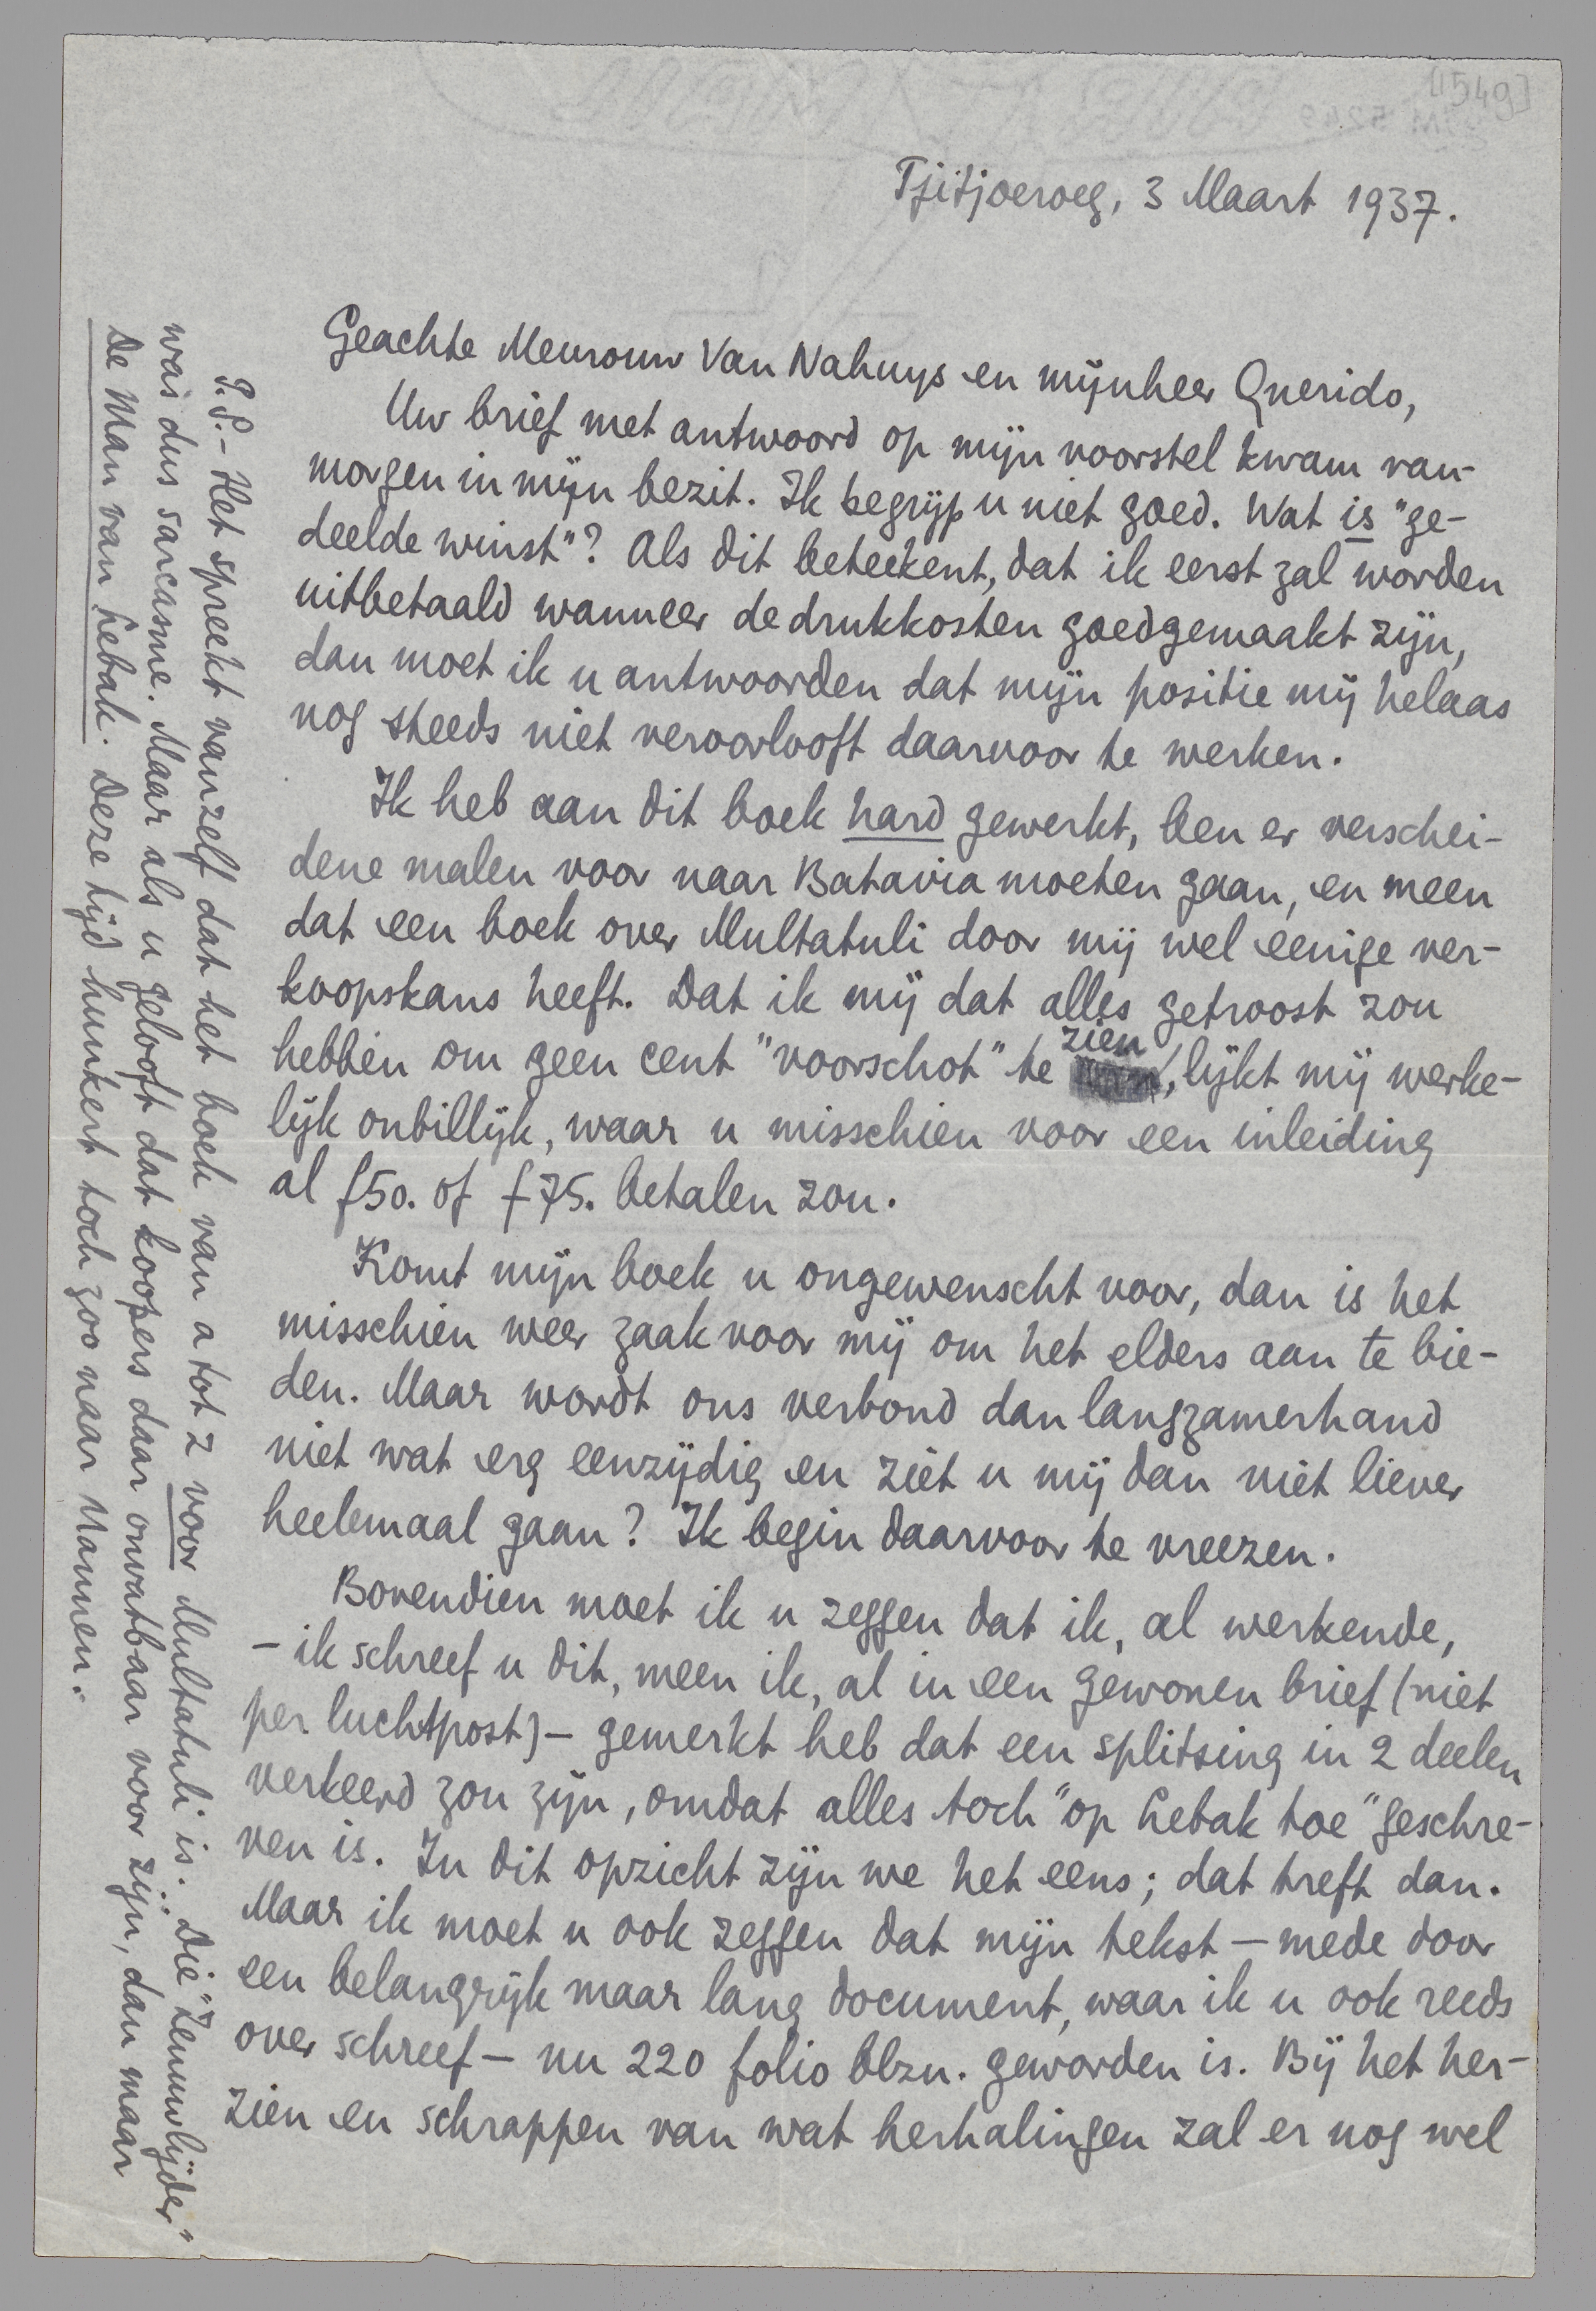 [1549]
Tjitjoeroeg, 3 Maart 1937.
Geachte Mevrouw Van Nahuys en mijnheer Querido,
Uw brief met antwoord op mijn voorstel kwam van-
morgen in mijn bezit. Ik begrijp u niet goed. Wat is "ge-
deelde winst"? Als dit beteekent, dat ik eerst zal worden
uitbetaald wanneer de drukkosten goedgemaakt zijn,
dan moet ik u antwoorden dat mijn positie mij helaas
nog steeds niet veroorlooft daarvoor te werken.
Ik heb aan dit boek hard gewerkt, ben er verschei-
dene malen voor naar Batavia moeten gaan, en meen
dat een boek over Multatuli door mij wel eenige ver-
koopskans heeft. Dat ik mij dat alles getroost zou
hebben om geen cent "voorschot" te zien, lijkt mij werke-
lijk onbillijk, waar u misschien voor een inleiding
al f 50. of f 75. betalen zou.
Komt mijn boek u ongewenscht voor, dan is het
misschien weer zaak voor mij om het elders aan te bie-
den. Maar wordt ons verbond dan langzamerhand
niet wat erg eenzijdig en ziet u mij dan niet liever
heelemaal gaan? Ik begin daarvoor te vreezen.
Bovendien moet ik u zeggen dat ik, al werkende,
- ik schreef u dit, meen ik, al in een gewonen brief (niet
per luchtpost) - gemerkt heb dat een splitsing in 2 deelen
verkeerd zou zijn, omdat alles toch "op Lebak toe" geschre-
ven is. In dit opzicht zijn we het eens; dat treft dan.
Maar ik moet u ook zeggen dat mijn tekst - mede door
een belangrijk maar lang document, waar ik u ook reeds
over schreef - nu 220 folio blzn. geworden is. Bij het her-
zien en schrappen van wat herhalingen zal er nog wel
P.S. - Het spreekt vanzelf dat het boek van a tot z voor Multatuli is. Die "zenuwlijder"
was dus sarcasme. Maar als u gelooft dat koopers daar onvatbaar voor zijn, dan maar
De Man van Lebak. Deze tijd hunkert toch zoo naar Mannen.